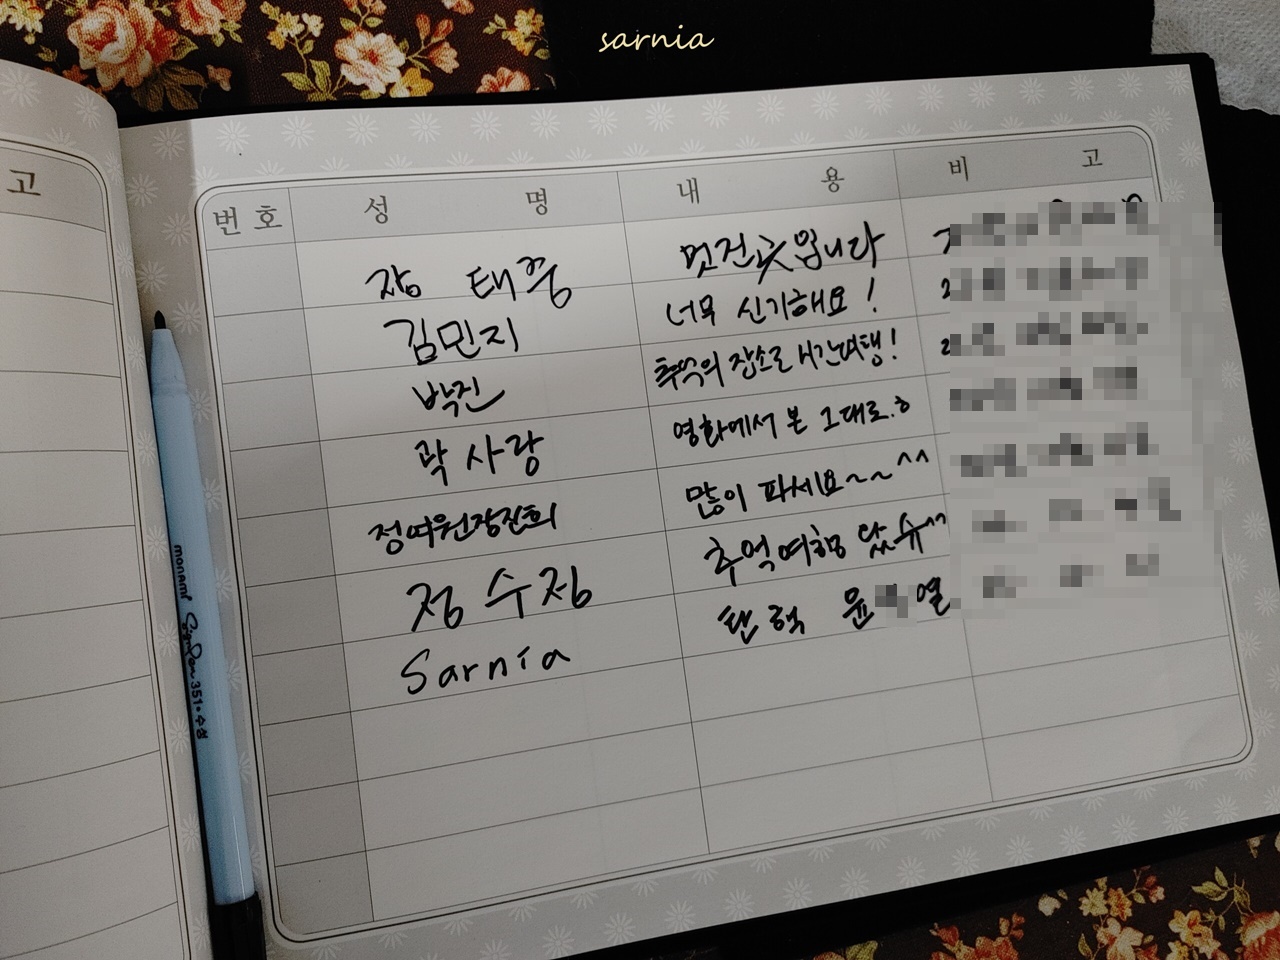 sarnia
고
번호 성명 내용 비고
장 태풍 멋건곳입니다
김민지 너무 신기해요!
박진 추억의 장소로 시간여행!
곽 사랑 영화에서 본 그대로.ㅎ
정여원장진희 많이 파세요~~^^
정 수정 추억여행 왔슈^^
Sarnia 탄핵 윤 열
monami SignPen 351. 수성